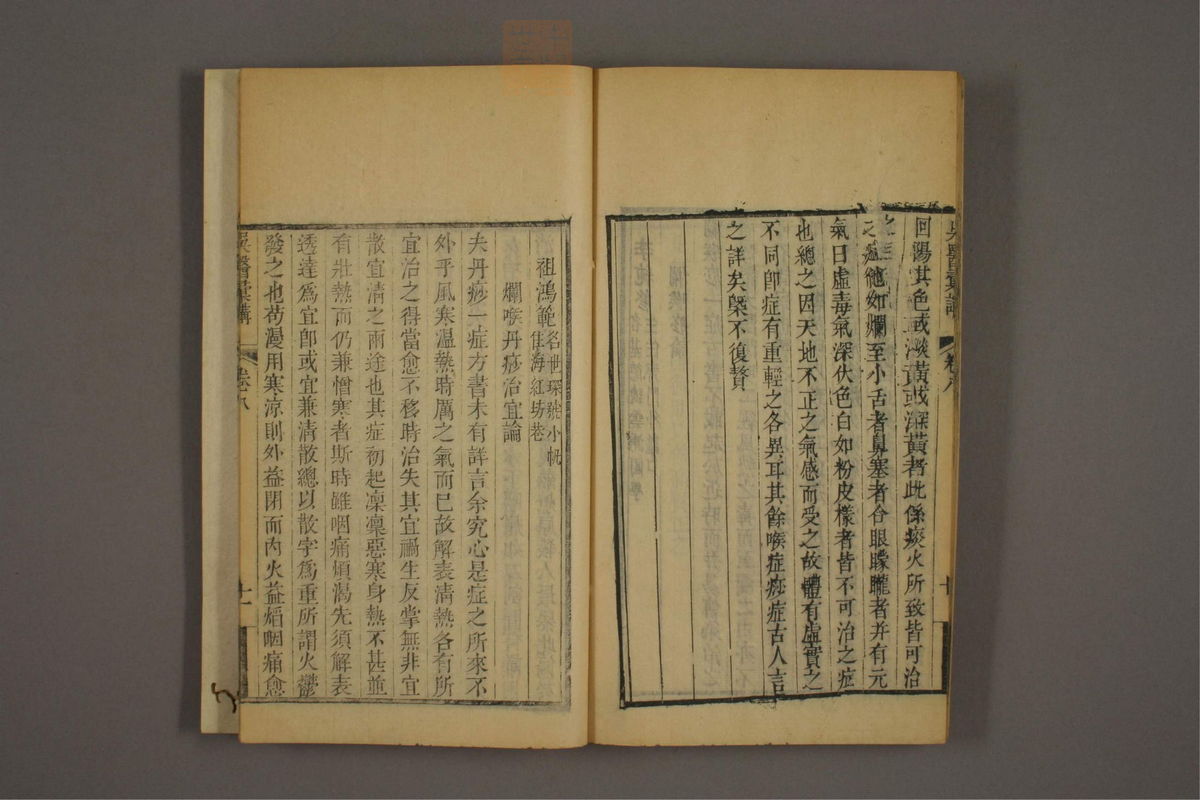 吳醫彙講
卷八
十
回陽其色或淡黃或深黃者此係痰火所致皆可治
之症他如爛至小舌者鼻塞者合眼矇矓者并有元
氣日虛毒氣深伏色白如粉皮樣者皆不可治之症
也總之因天地不正之氣感而受之故體有虛實之
不同卽症有重輕之各異耳其餘喉症痧症古人言
之詳矣槩不復贅
祖鴻範
名世琛號小帆
住海紅坊巷
爛喉丹痧治宜論
夫丹痧一症方書未有詳言余究心是症之所來不
外乎風寒温熱時厲之氣而已故解表淸熱各有所
宜治之得當愈不移時治失其宜禍生反掌無非宜
散宜淸之兩途也其症初起凜凜惡寒身熱不甚並
有壯熱而仍兼憎寒者斯時雖咽痛煩渴先須解表
透達爲宜卽或宜兼淸散總以散字爲重所謂火鬱
發之也苟漫用寒凉則外益閉而內火益熖咽痛愈
吳醫彙講
卷八
十一